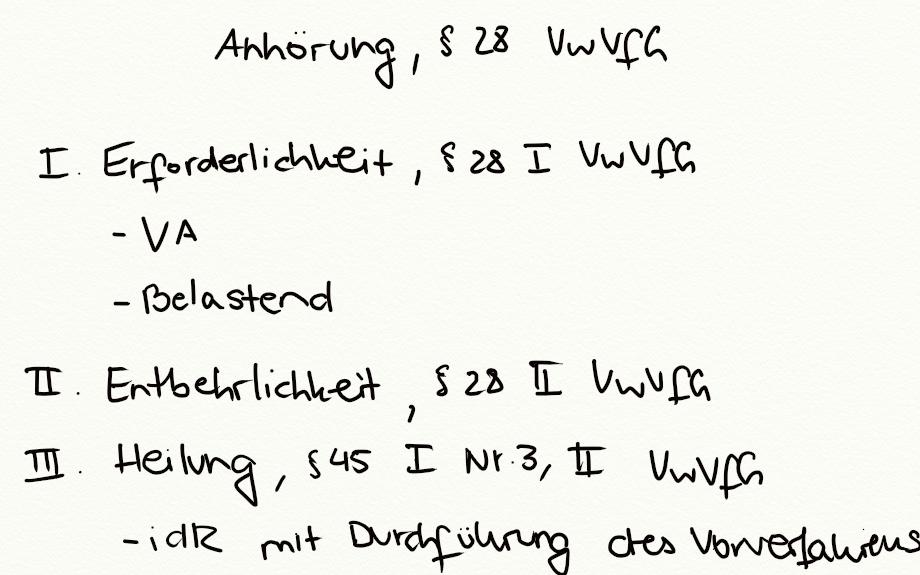 Anhörung, § 28 VwVfG
I. Erforderlichkeit, § 28 I VwVfG
- VA
- Belastend
II. Entbehrlichkeit, § 28 II VwVfG
III. Heilung, § 45 I Nr. 3, II VwVfG
- idR mit Durchführung des Vorverfahrens